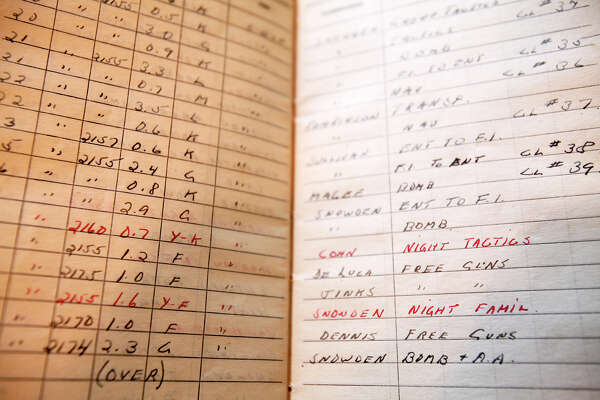 2155 0.5 K
20 " " 3.0 G "
21 " " 0.9 K "
" 2155 3.3 L "
" " 0.7 M "
22 " " 3.5 L "
3 " " 0.6 K "
5 " 2157 0.6 K "
5 " 2155 2.4 G "
" 0.8 K "
" 2.9 G "
" 2160 0.7 Y-K "
" 2155 1.2 F "
" 1.0 F "
" 2155 1.6 Y-F "
" 2170 1.0 F "
" 2174 2.3 G "
(OVER)
TACTICS CL #34
" TACTICS
" BOMB
" F.I. TO ENT CL #35
" NAV CL #36
TRANSP.
" NAV CL #37
ENT TO F.I.
" F.I. TO ENT CL #38
MAGEE BOMB CL #39
SNOWDEN ENT TO F.I.
" BOMB.
COHN NIGHT TACTICS
DE LULA FREE GUNS
JINKS " "
SNOWDEN NIGHT FAMIL.
DENNIS FREE GUNS
SNOWDEN BOMB + A.A.